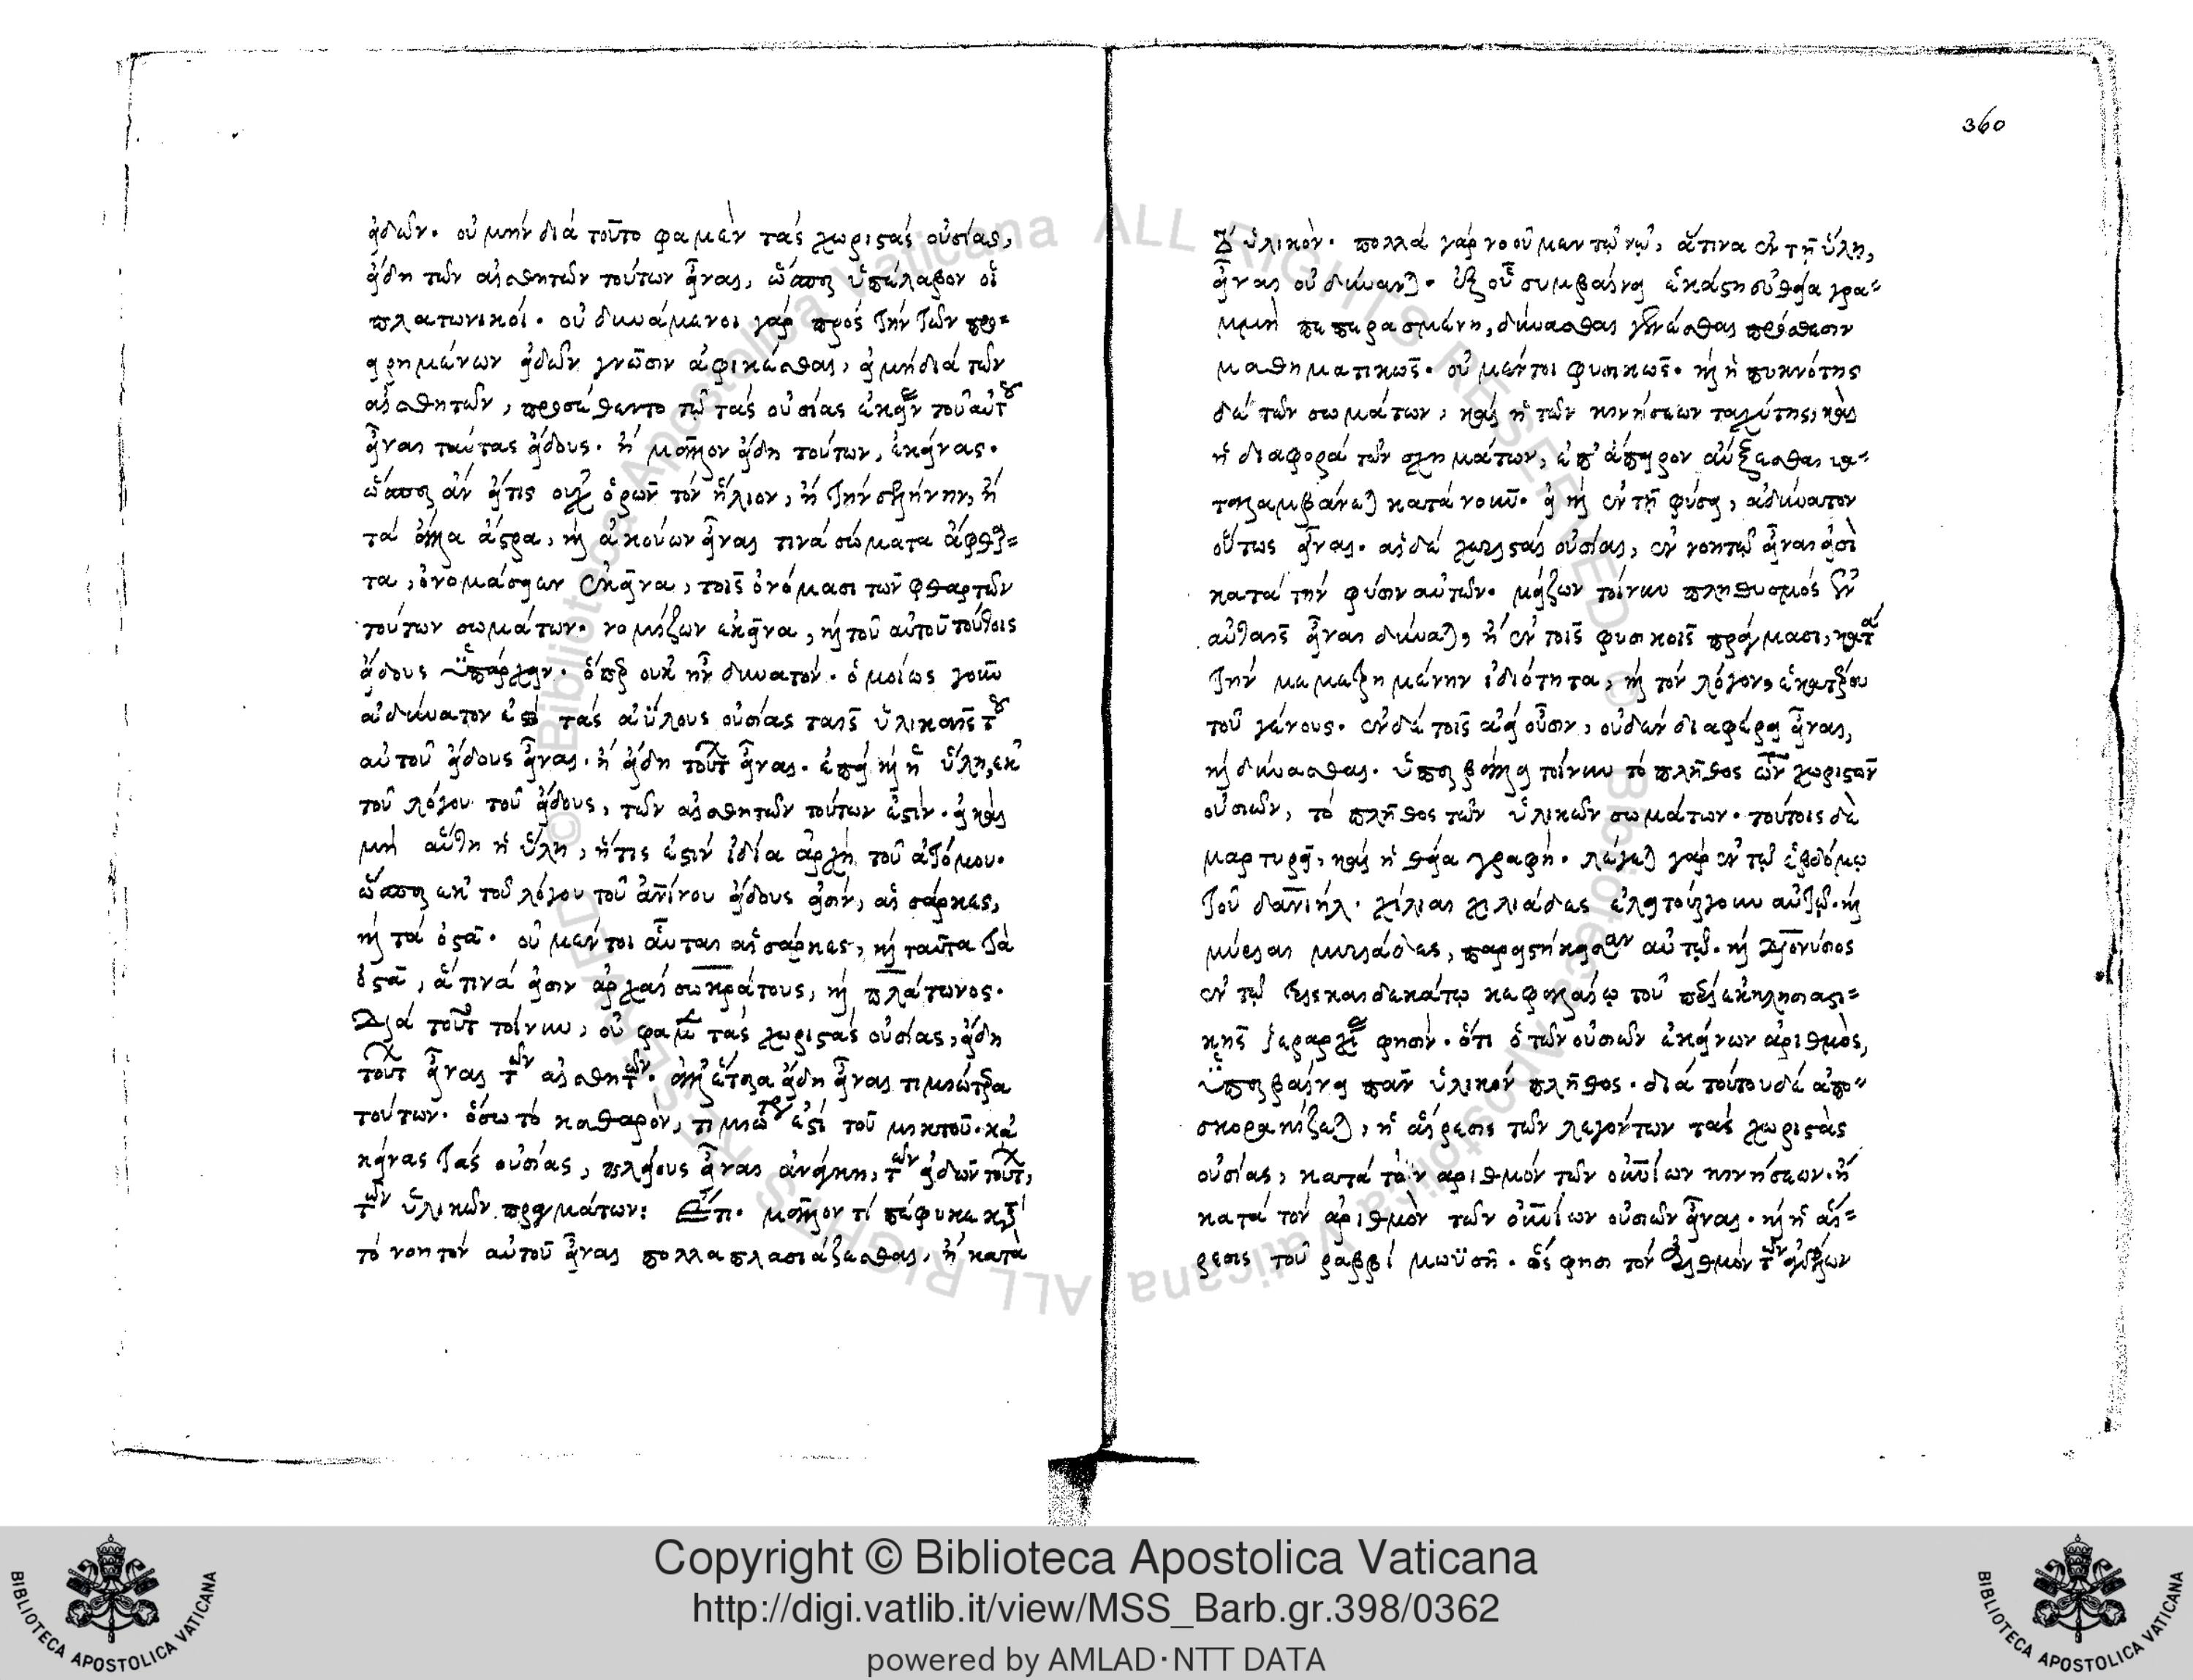 360
εἰδῶν. οὐ μὴν διὰ τοῦτο φαμὲν τὰς χωριστὰς οὐσίας,
εἴδη τῶν αἰσθητῶν τούτων εἶναι, ὥσπερ ὑπέλαβον οἱ
πλατωνικοί. οὐ δυνάμενοι γὰρ πρὸς τὴν τῶν προ-
ειρημένων εἰδῶν γνῶσιν ἀφικέσθαι, εἰ μὴ διὰ τῶν
αἰσθητῶν, προσέθεντο τῷ τὰς οὐσίας ἐκείνων τοῦ αὐτοῦ
εἶναι ταύτας εἴδους. ἢ μᾶλλον εἴδη τούτων, ἐκείνας.
ὥσπερ ἂν εἴτις οὐχ ὁρῶν τὸν ἥλιον, ἢ τὴν σελήνην, ἢ
τὰ ἄλλα ἄστρα, καὶ ἀκούων εἶναι τινὰ σώματα ἄφθαρ-
τα, ὀνομάσειεν ἐκεῖνα, τοῖς ὀνόμασι τῶν φθαρτῶν
τούτων σωμάτων. νομίζων ἐκεῖνα, καὶ τοῦ αὐτοῦ τούτοις
εἴδους ὑπάρχειν. ὅπερ οὐκ ἦν δυνατόν. ὁμοίως γοῦν
ἀδύνατον ἐστὶ τὰς ἀΰλους οὐσίας ταῖς ὑλικαῖς τοῦ
αὐτοῦ εἴδους εἶναι. ἢ εἴδη τούτων εἶναι. ἐπεὶ καὶ ἡ ὕλη, ἐκ
τοῦ λόγου τοῦ εἴδους, τῶν αἰσθητῶν τούτων ἐστίν. εἰ καὶ
μὴ αὕτη ἡ ὕλη, ἥτις ἐστὶν ἰδία ἀρχὴ τοῦ ἀτόμου.
ὥσπερ ἐκ τοῦ λόγου τοῦ ἀνίνου εἴδους εἰσὶν, αἱ σάρκες,
καὶ τὰ ὀστᾶ. οὐ μέντοι αὗται αἱ σάρκες, καὶ ταῦτα τὰ
ὀστᾶ, ἅτινά εἰσιν ἀρχαὶ σωκράτους, καὶ πλάτωνος.
Διὰ τοῦτο τοίνυν, οὐ φαμὲν τὰς χωριστὰς οὐσίας, εἴδη
τούτων εἶναι τῶν αἰσθητῶν. ἀλλ' ἕτερα εἴδη εἶναι τιμιώτερα
τούτων. ὅσω τὸ καθαρὸν, τιμιώτερόν ἐστι τοῦ μικτοῦ. κἀ
κείνας τὰς οὐσίας, πλείους εἶναι ἀνάγκη, τῶν εἰδῶν τούτων,
τῶν ὑλικῶν πραγμάτων: Ἔτι. μᾶλλον τί πέφυκε κατὰ
τὸ νοητὸν αὐτοῦ εἶναι πολλαπλασιάζεσθαι, ἢ κατὰ
τὸ ὑλικόν. πολλὰ γὰρ νοοῦμεν τῷ νῷ, ἅτινα ἐν τῇ ὕλῃ,
εἶναι οὐ δύνανται. ἐξ οὗ συμβαίνει ἑκάστη εὐθεία γρα-
μμῇ πεπερασμένη, δύνασθαι γενέσθαι πρόσθεσιν
μαθηματικῶς. οὐ μέντοι φυσικῶς. καὶ ἡ πυκνότης
δὲ τῶν σωμάτων, καὶ ἡ τῶν κινήσεων ταχύτης, καὶ
ἡ διαφορὰ τῶν σχημάτων, ἐπ' ἄπειρον αὔξεσθαι κα-
ταλαμβάνεται κατὰ νοῦν. εἰ καὶ ἐν τῇ φύσει, ἀδύνατον
οὕτως εἶναι. αἱ δὲ χωρισταὶ οὐσίαι, ἐν νοητῷ εἶναι εἰσὶ
κατὰ τὴν φύσιν αὐτῶν. μείζων τοίνυν πληθυσμὸς ἐν
αὐταῖς εἶναι δύναται, ἢ ἐν τοῖς φυσικοῖς πράγμασι, κατὰ
τὴν ἰδιότητα, καὶ τὸν λόγον, ἑκατέρου
τοῦ γένους. ἐν δὲ τοῖς ἀεὶ οὖσιν, οὐδὲν διαφέρει εἶναι,
καὶ δύνασθαι. ὑπερβάλλει τοίνυν τὸ πλῆθος τῶν χωριστῶν
οὐσιῶν, τὸ πλῆθος τῶν ὑλικῶν σωμάτων. τούτοις δὲ
μαρτυρεῖ, καὶ ἡ θεία γραφή. λέγεται γὰρ ἐν τῷ ἑβδόμῳ
τοῦ δανιήλ. χίλιαι χιλιάδες ἐλειτούργουν αὐτῷ. καὶ
μύριαι μυριάδες, παρειστήκεισαν αὐτῷ. καὶ Διονύσιος
ἐν τῷ τρισκαιδεκάτῳ κεφαλαίῳ τοῦ περὶ ἐκκλησιαστι-
κῆς ἱεραρχίας φησὶν. ὅτι ὁ τῶν οὐσιῶν ἐκείνων ἀριθμὸς,
ὑπερβαίνει πᾶν ὑλικὸν πλῆθος. διὰ τούτου δὲ ἀπο-
σκορακίζεται, ἡ αἵρεσις τῶν λεγόντων τὰς χωριστὰς
οὐσίας, κατὰ τὸν ἀριθμὸν τῶν οὐνίων κινήσεων. ἢ
κατὰ τὸν ἀριθμὸν τῶν οὐνίων οὐσιῶν εἶναι. καὶ ἡ αἵ-
ρεσις τοῦ ραββὶ μωϋσῆ. ὅς φησι τὸν ἀριθμὸν τῶν ἀγγέλων
Copyright © Biblioteca Apostolica Vaticana
http://digi.vatlib.it/view/MSS_Barb.gr.398/0362
powered by AMLAD·NTT DATA
BIBLIOTECA APOSTOLICA VATICANA
BIBLIOTECA APOSTOLICA VATICANA